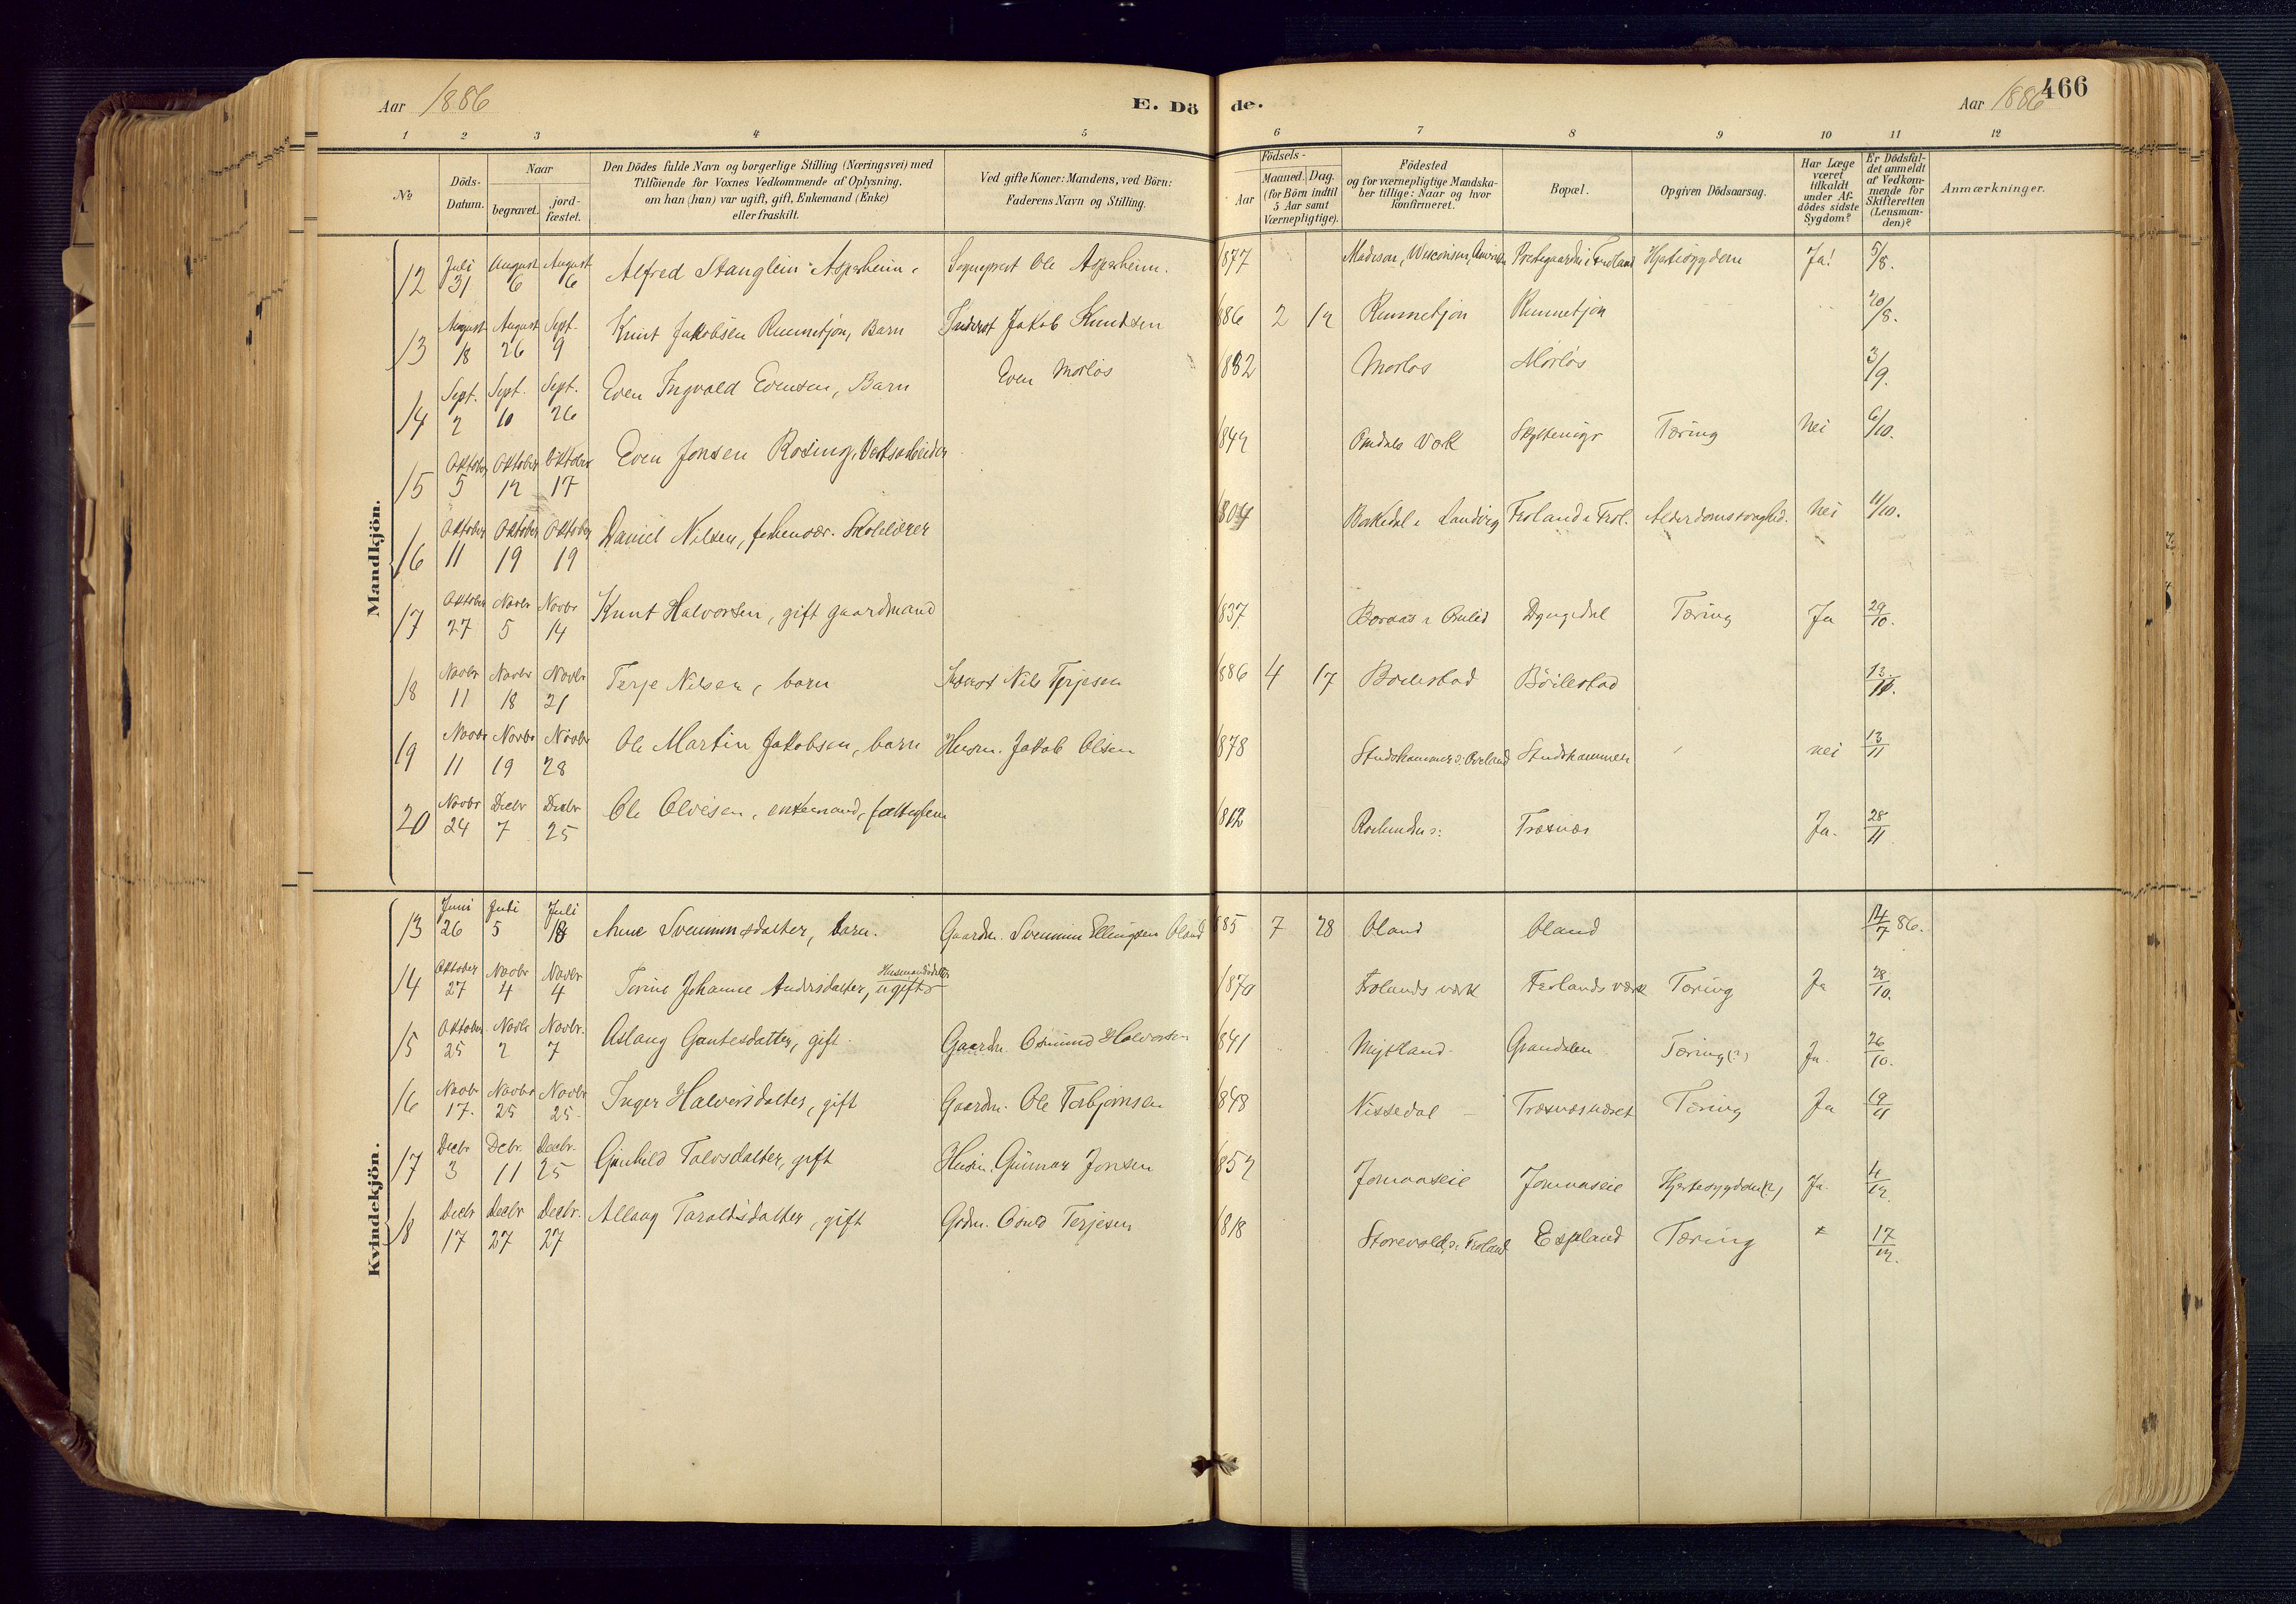 Aar 1886 E. Dö de. Aar 1886 466
1 2 3 4 5 6 7 8 9 10 11 12
No
Döds-
Datum.
Naar
begravet.
jord-
fæstet.
Den Dödes fulde Navn og borgerlige Stilling (Næringsvei) med
Tilföiende for Voxnes Vedkommende af Oplysning,
om han (hun) var ugift, gift, Enkemand (Enke)
eller fraskilt.
Ved gifte Koner: Mandens, ved Börn:
Faderens Navn og Stilling.
Födsels-
Aar
Maaned. Dag.
(for Börn indtil
5 Aar samt
Værnepligtige).
Födested
og for værnepligtige Mandska-
ber tillige: Naar og hvor
konfirmeret.
Bopæl.
Opgiven Dödsaarsag.
Har Læge
været
tilkaldt
under Af-
dödes sidste
Sygdom?
Er Dödsfal-
det anmeldt
af Vedkom-
mende for
Skifteretten
(Lensman-
den)?
Anmærkninger.
Mandkjön.
12 Juli 31 August 6 August 6 Alfred Stanglein Asperheim, Sogneprest Ole Asperheim. 1877 Madison, Wisconsin, Prestegaarden i Froland Hjertesygdom Ja! 5/8.
13 August 18 August 26 Sept. 9 Knut Jakobsen Rennetjøn, Barn Inderst Jakob Knudsen 1886 2 12 Rennetjøn Rennetjøn 20/8.
14 Sept. 2 Sept. 10 Sept. 26 Even Ingvald Evensen, Barn Even Mørløs 1882 Mørløs Mørløs 3/9.
15 Oktober 5 Oktober 12 Oktober 17 Even Jonsen Rosing, Verksarbeider 1842 Omdals Værk Tæring Nei 6/10.
16 Oktober 11 Oktober 19 Oktober 19 Daniel Nilsen, forhenvær. Skolelærer 1804 Bakkedal i Landvig Froland i Frol. Alderdomssvaghed. Nei 11/10.
17 Oktober 27 Novbr 5 Novbr 14 Knut Halvorsen, gift gaardmand 1837 Boraas i Omlid Dyngedal Tæring Ja 29/10.
18 Novbr 11 Novbr 18 Novbr 21 Terje Nilsen, barn Inderst Nils Terjesen 1886 4 17 Bøilestad Böilestad
19 Novbr 11 Novbr 19 Novbr 28 Ole Martin Jakobsen, barn Husm. Jakob Olsen 1878 Studehammer Studehammer nei 13/11
20 Novbr 24 Decbr 7 Decbr 25 Ole Olvesen, enkemand, 1812 Trævnæs Ja. 28/11
Kvindekjön.
13 Juni 26 Juli 5 Juli 18 Anne Svenumsdatter, barn. Gaardm. Svenum Ellingsen Oland 1885 7 28 Oland Oland 14/7 86.
14 Oktober 27 Novbr 4 Novbr 4 Torine Johanne Andersdatter, Husmandsdatter ugift 1870 Frolands værk Frolands værk Tæring Ja 28/10.
15 Oktober 25 Novbr 2 Novbr. 7 Aslaug Gautesdatter, gift. Gaardm. Osmund Halvorsen 1841 Mykland Grandalen Tæring (?) Ja. 26/10.
16 Novbr 17. Novbr 25 Novbr 25 Inger Halvorsdatter, gift Gaardm. Ole Torbjørnsen 1848 Nissedal Tæring Ja 19/11
17 Decbr 3 Decbr. 11 Decbr. 25 Gunhild Talevsdatter, gift Husm. Gunnar Jonsen 1852 Jomaaseie Jomaaseie Hjertesygdom (?) Ja. 4/12.
18 Decbr 17 Decbr 27 Decbr. 27 Allaug Taraldsdatter, gift Grdm. Osuld Terjesen 1818 Storevold, Froland Espland Tæring 17/12.